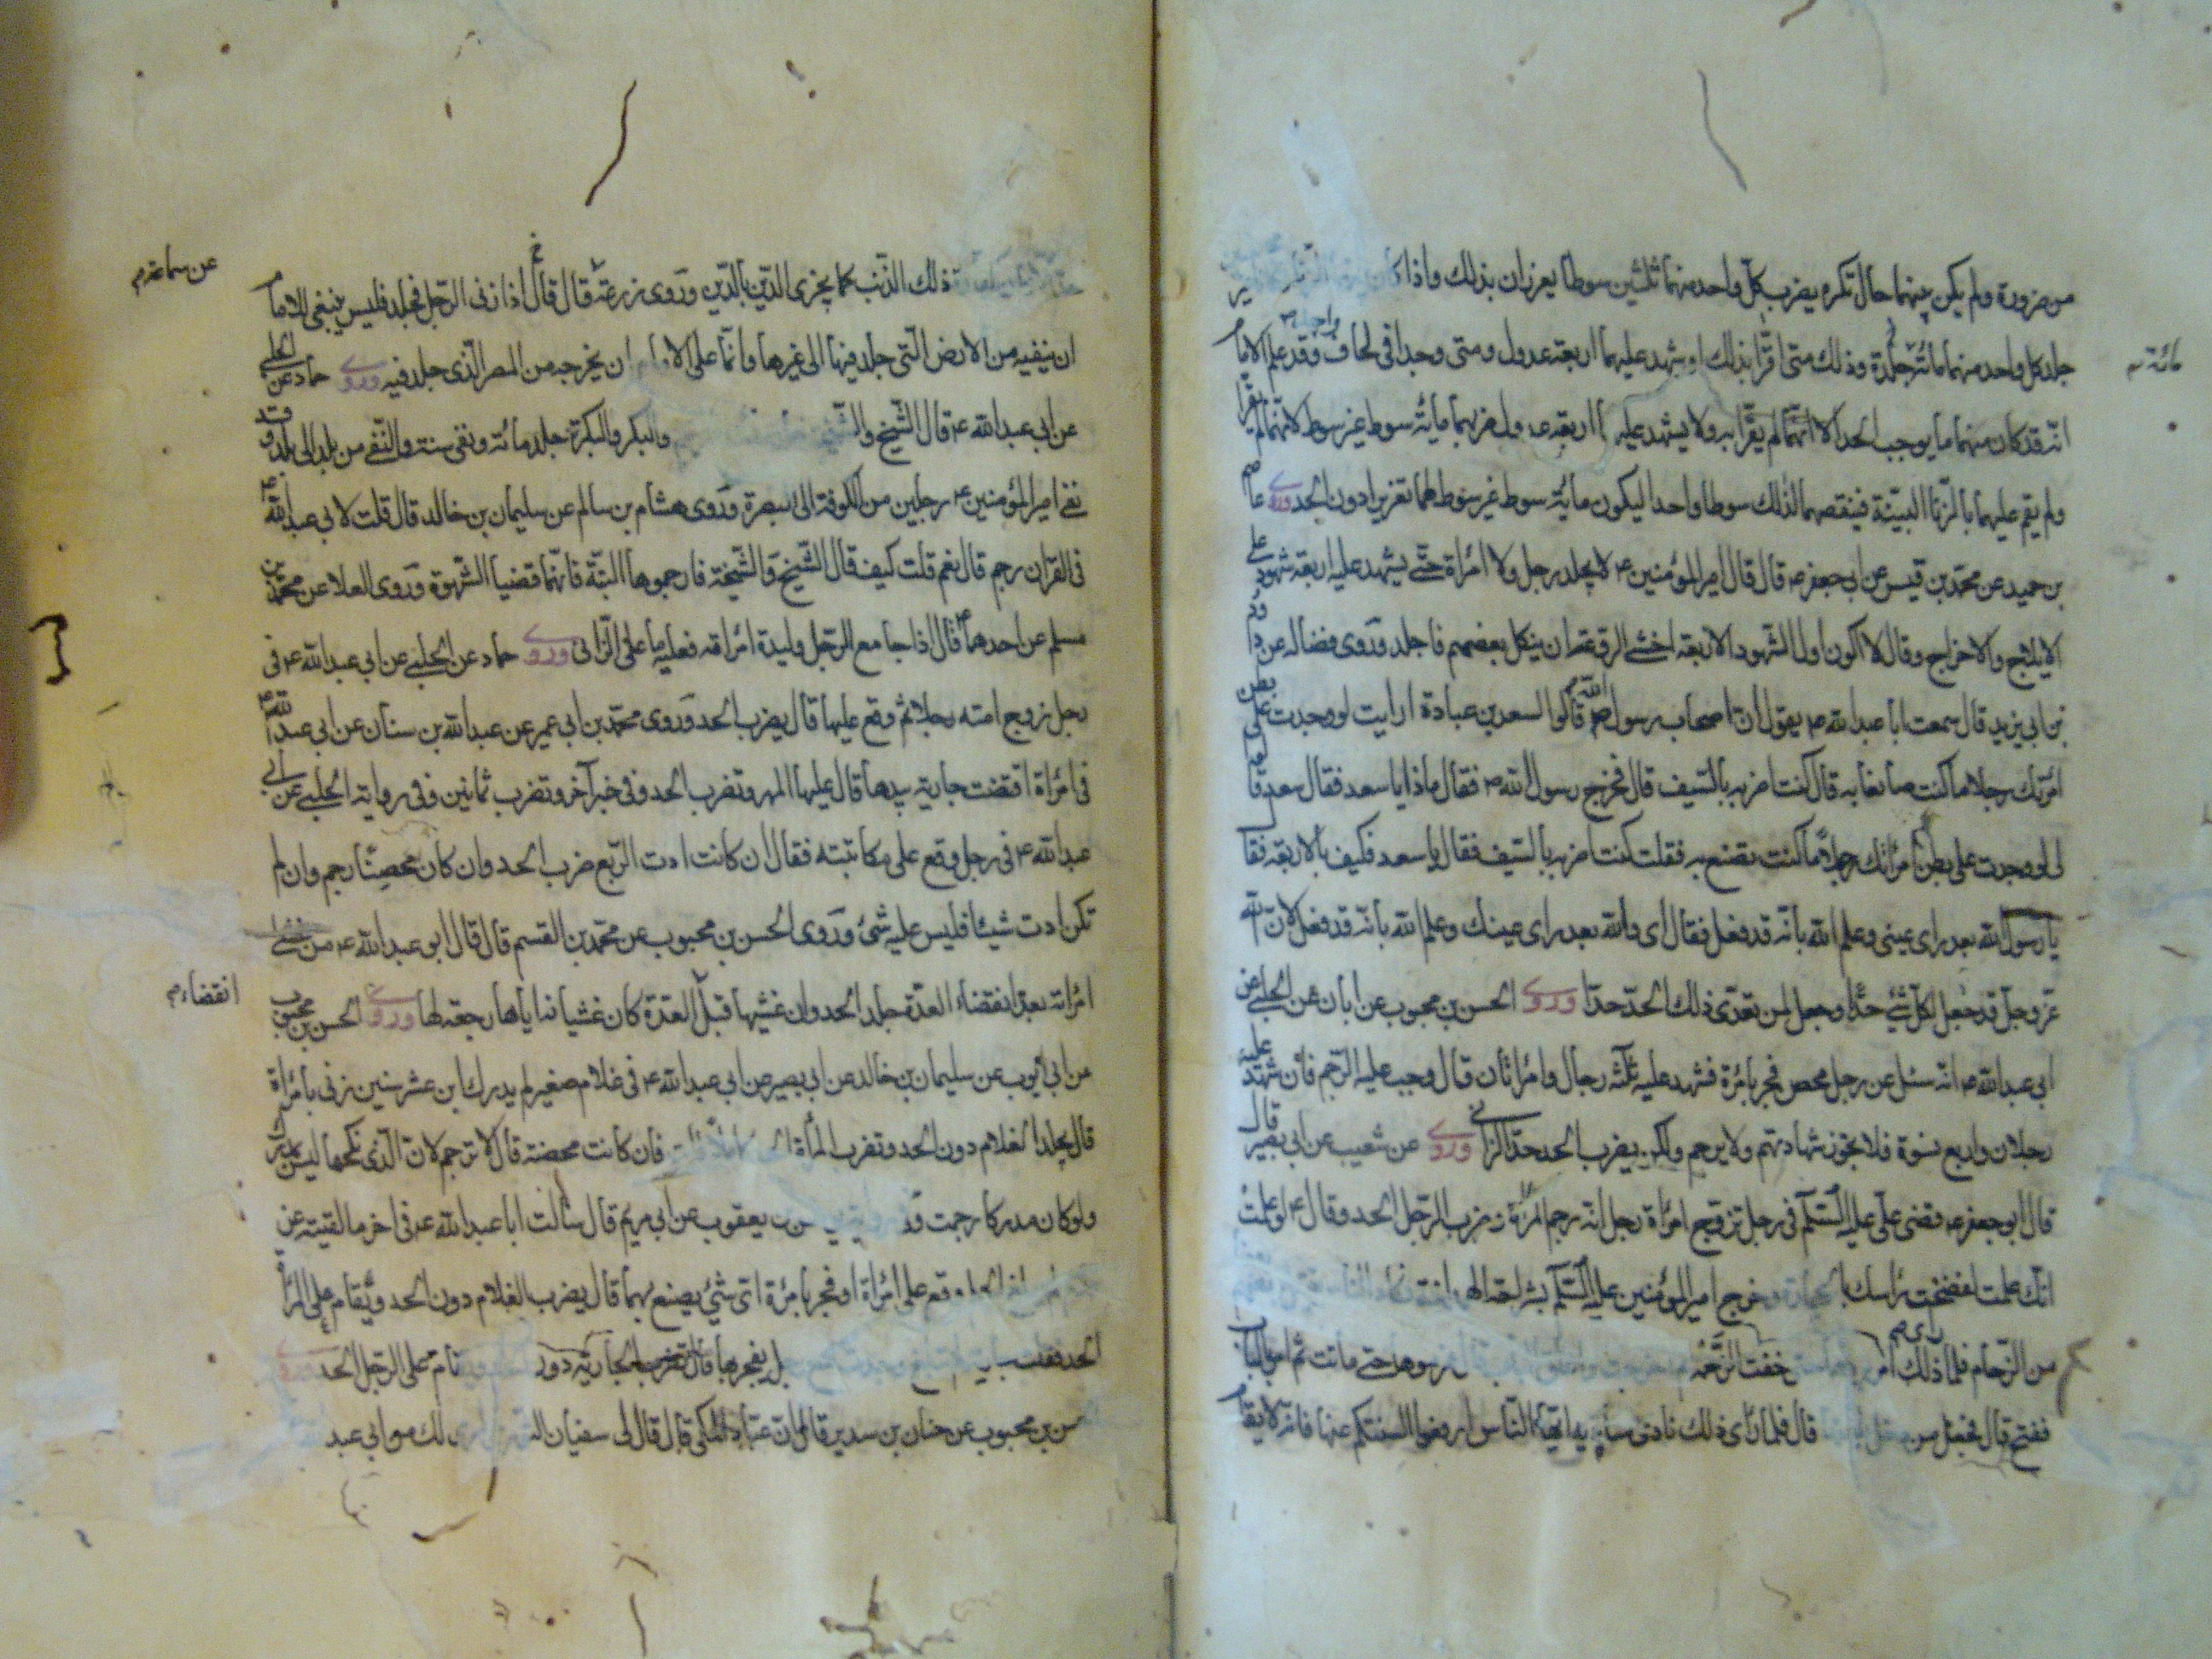 من ضرورة ولم يكن بينهما حال تكره يضرب كل واحد منهما ثلثين سوطا يعزران بذلك واذا
جلد كل واحد منهما مائة جلدة وذلك متى اقرا بذلك او شهد عليهما اربعة عدول ومتى وجدا في لحاف واحد وقد علم الامام
مائة
انه قد كان منهما ما يوجب الحد الا انهما لم يقرا به ولا يشهد عليهما اربعة عدول ضربهما مائة سوط غير سوط لانهما لم يقرا
ولم يقم عليهما بالزنا البينة فينقصهما لذلك سوطا واحدا ليكون مائة سوط غير سوط لهما تعزيرا دون الحد وروى عاصم
بن حميد عن محمد بن قيس عن ابي جعفر ع قال قال امير المؤمنين ع لا يجلد رجل ولا امرأة حتى يشهد عليه اربعة شهود على
الايلاج والاخراج وقال لا اكون اول الشهود الاربعة اخشى الروعة ان ينكل بعضهم فاجلد وروى فضالة عن داود
بن ابي يزيد قال سمعت ابا عبد الله ع يقول ان اصحاب رسول الله ص قالوا لسعد بن عبادة ارايت لو وجدت على بطن
امرأتك رجلا ما كنت صانعا به قال كنت اضربه بالسيف قال فخرج رسول الله ص فقال ماذا يا سعد فقال سعد قالوا
لي لو وجدت على بطن امرأتك رجلا ما كنت تصنع به فقلت كنت اضربه بالسيف فقال يا سعد فكيف بالاربعة فقال
يا رسول الله بعد راى عيني وعلم الله بانه قد فعل فقال اى والله بعد راى عينك وعلم الله بانه قد فعل لان الله
عز وجل قد جعل لكل شئ حدا وجعل لمن تعدى ذلك الحد حدا وروى الحسن بن محبوب عن ابان عن الحلبي عن
ابي عبد الله ع انه سئل عن رجل محصن فجر بامرأة فشهد عليه ثلثة رجال وامرأتان قال وجب عليه الرجم فان شهد عليه
رجلان واربع نسوة فلا تجوز شهادتهم ولا يرجم ولكن يضرب الحد حد الزاني وروى عن شعيب عن ابي بصير قال
قال ابو جعفر ع قضى علي عليه السلام في رجل تزوج امرأة رجل انه رجم المرأة وضرب الرجل الحد وقال ع لو علمت
انك علمت لفضخت رأسك بالحجارة وخرج امير المؤمنين عليه السلام بشراحة الهمدانية
من الزحام فلما رأى ذلك امر خفت الزحمة رموها حتى ماتت ثم امر بالباب
ففتح قال فجعل من قال فلما رأى ذلك نادى مناديه ايها الناس ارفعوا السنتكم عنها فانه لا يقام
ذلك الذنب كما يجزى الدين بالدين وروى زرعة قال قال اذا زنى الرجل فجلد فليس ينبغي للامام
عن سماعة
ان ينفيه من الارض التي جلد فيها الى غيرها وانما على الامام ان يخرجه من المصر الذي جلد فيه وروى حماد عن الحلبي
عن ابي عبد الله ع قال الشيخ والشيخة والبكر والبكرة جلد مائة ونفي سنة والنفي من بلد الى بلد وقد
نفى امير المؤمنين ع رجلين من الكوفة الى البصرة وروى هشام بن سالم عن سليمان بن خالد قال قلت لابي عبد الله ع
في القران رجم قال نعم قلت كيف قال الشيخ والشيخة فارجموهما البتة فانهما قضيا الشهوة وروى العلا عن محمد بن
مسلم عن احدهما ع قال اذا جامع الرجل وليدة امرأته فعليه ما على الزاني وروى حماد عن الحلبي عن ابي عبد الله ع في
رجل زوج امته رجلا ثم وقع عليها قال يضرب الحد وروى محمد بن ابي عمير عن عبد الله بن سنان عن ابي عبد الله ع
في امرأة اقتضت جارية بيدها قال عليها المهر وتضرب الحد وفي خبر آخر وتضرب ثمانين وفي رواية الحلبي عن ابي
عبد الله ع في رجل وقع على مكاتبته فقال ان كانت ادت الربع ضرب الحد وان كان محصنا رجم وان لم
تكن ادت شيئا فليس عليه شئ وروى الحسن بن محبوب عن محمد بن القسم قال قال ابو عبد الله ع من غشى
امرأته بعد انقضاء العدة جلد الحد وان غشيها قبل العدة كان غشيانه اياها رجعة لها وروى الحسن بن محبوب
انقضاء
عن ابي ايوب عن سليمان بن خالد عن ابي بصير عن ابي عبد الله ع في غلام صغير لم يدرك ابن عشر سنين زنى بامرأة
قال يجلد الغلام دون الحد وتضرب المرأة الحد فان كانت محصنة قال لا ترجم لان الذي نكحها ليس بمدرك
ولو كان مدركا رجمت يعقوب عن ابي مريم قال سألت ابا عبد الله ع في اخر ما لقيته عن
وقع على امرأة او فجر بامرأة اى شئ يصنع بهما قال يضرب الغلام دون الحد ويقام على المرأة
الحد يفجر بها قال تضرب الجارية دون على الرجل الحد
بن محبوب عن حنان بن سدير قال ان عباد المكي قال قال لي سفيان ابي عبد